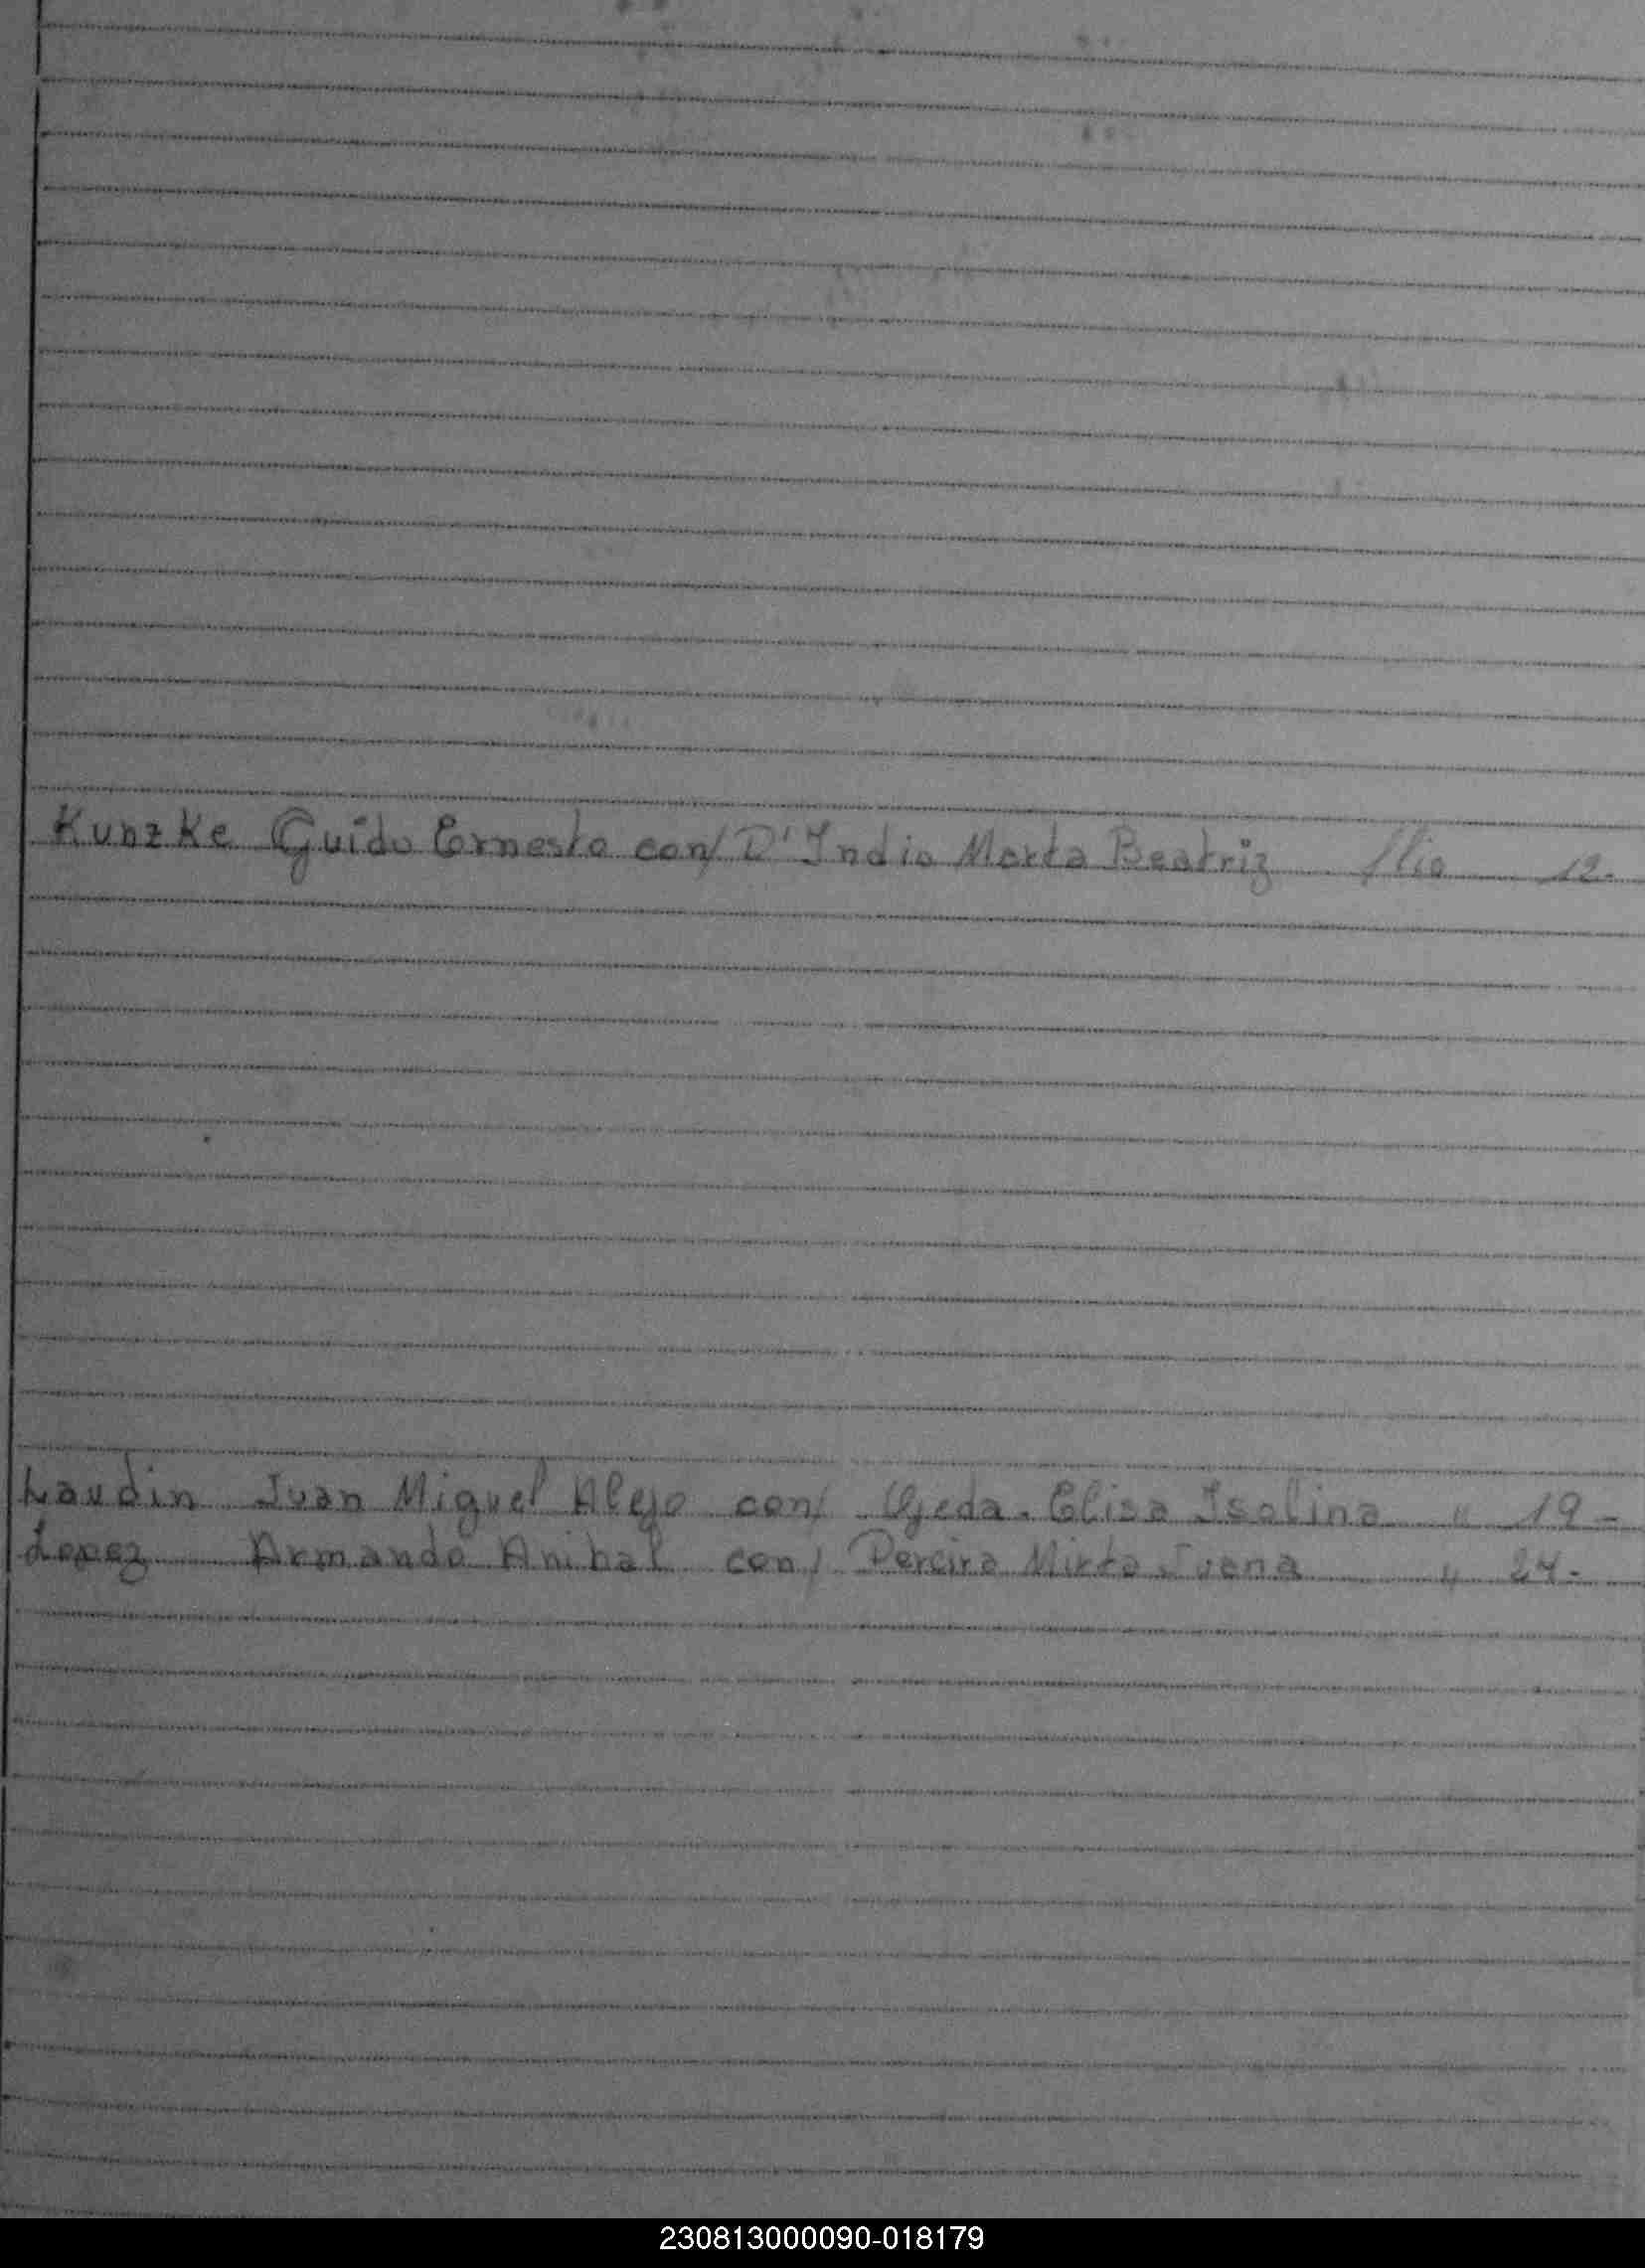 Kunzke Guido Ernesto con/ D'Indio Marta Beatriz flio 12.
Laudin Juan Miguel Alejo con/ Ojeda. Elisa Isolina " 19-
Lopez Armando Anibal con/ Pereira Mirta Juana " 24.
230813000090-018179